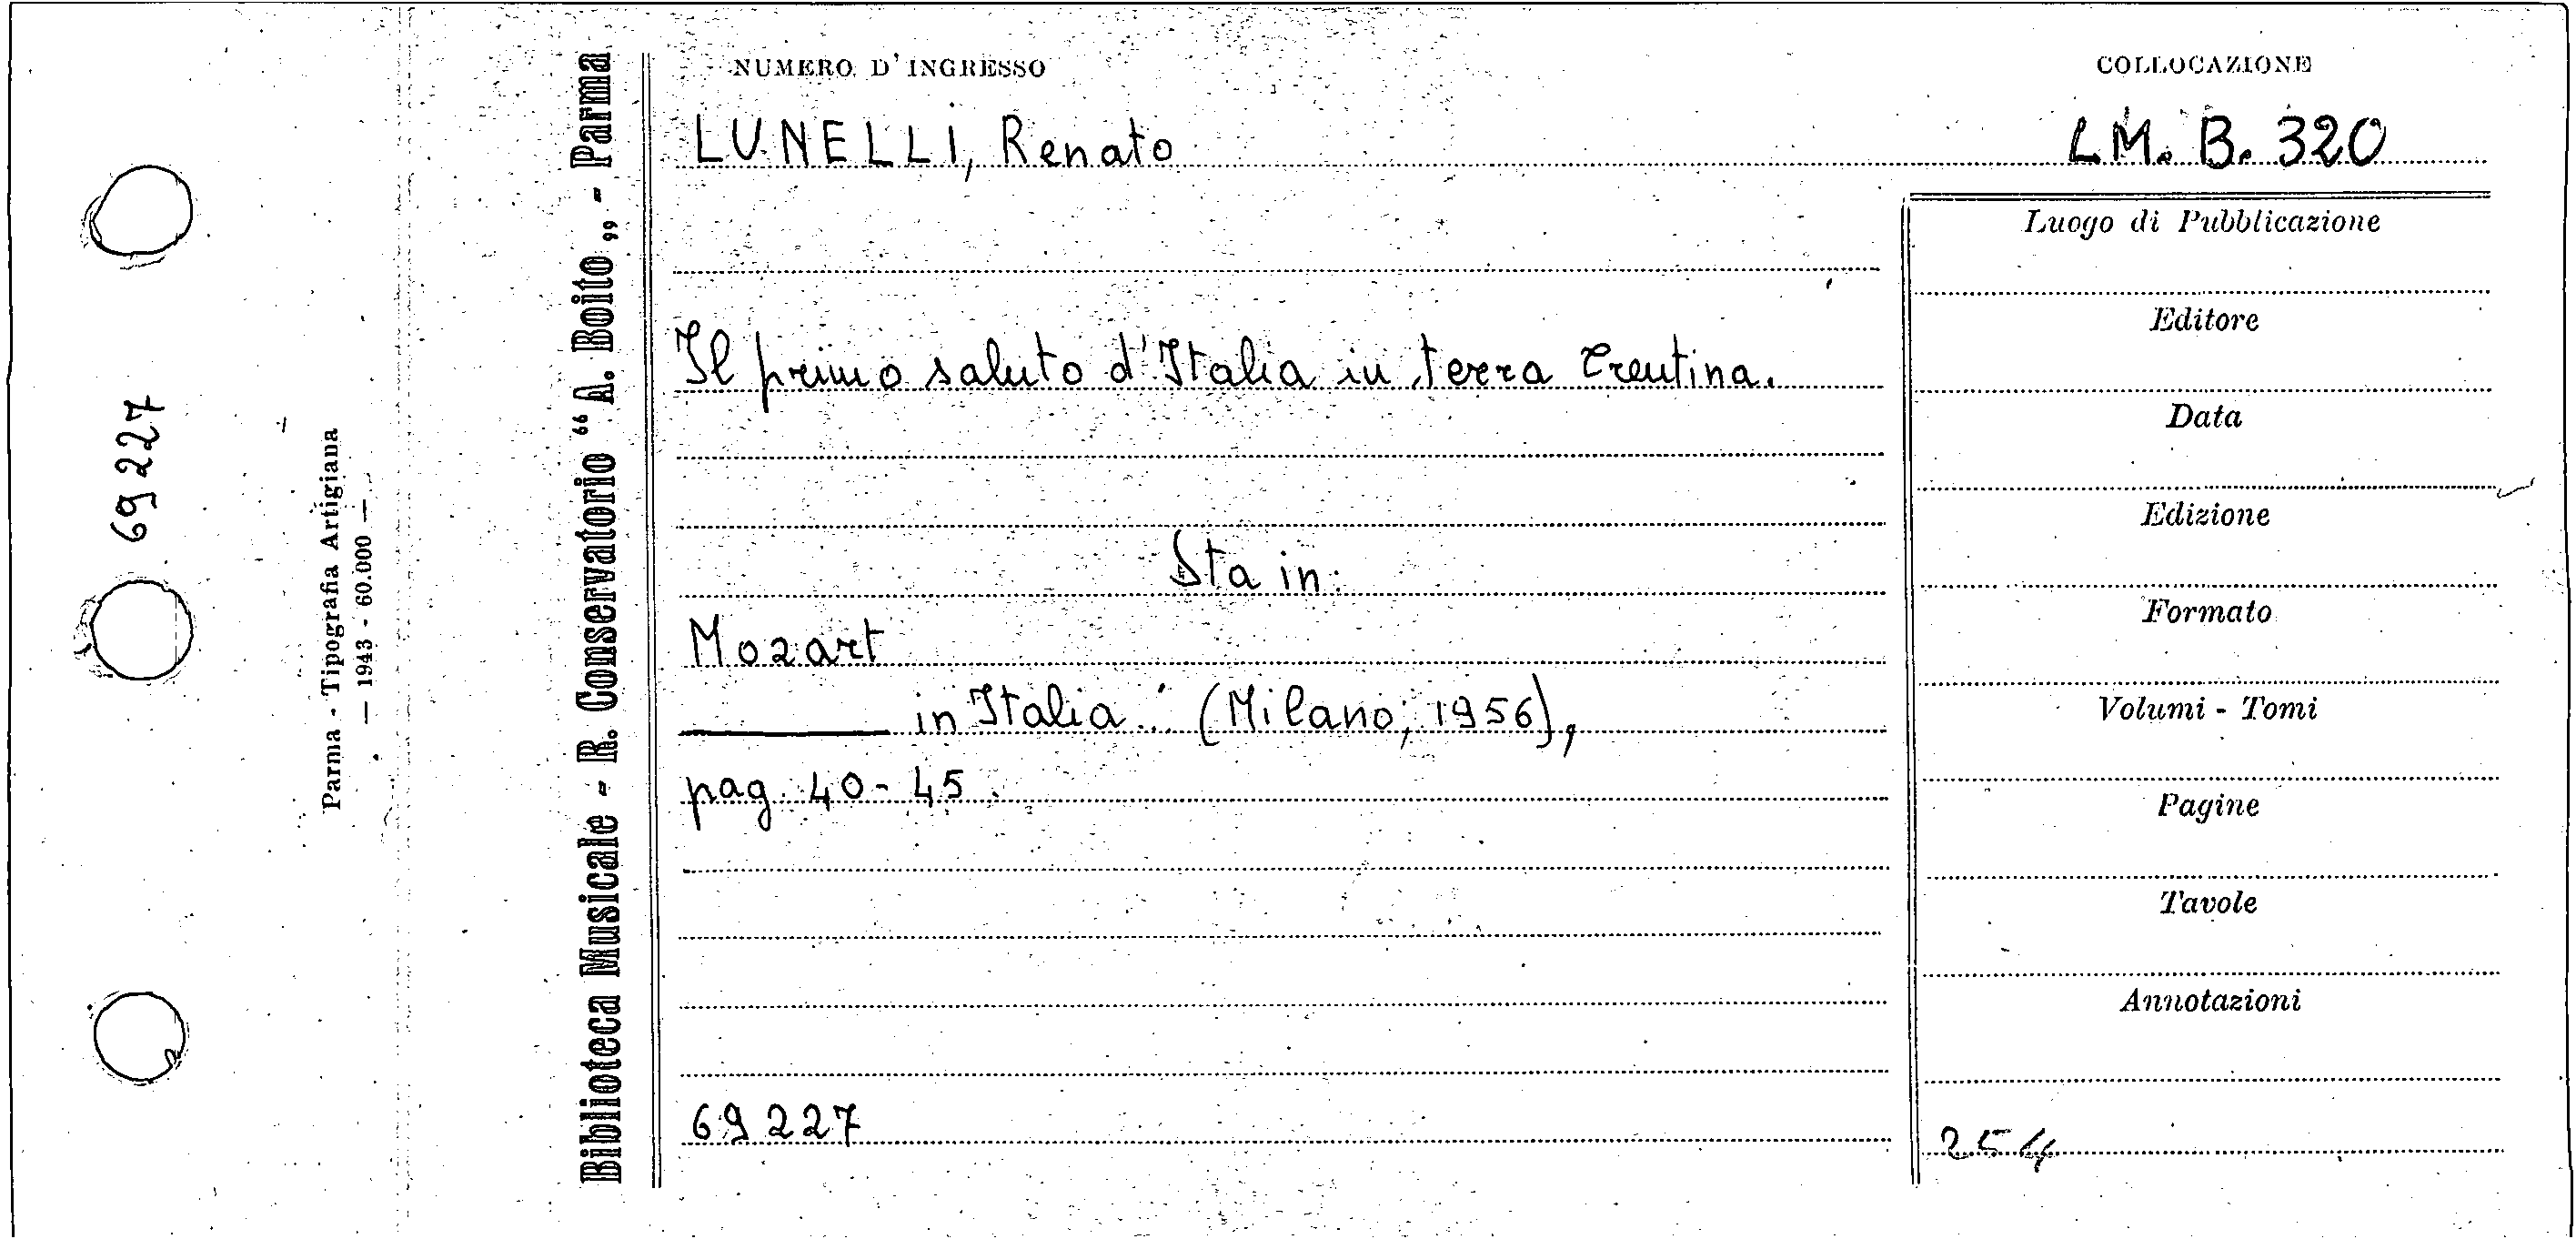 69227
Parma - Tipografia Artigiana
— 1943 - 60.000 —
Biblioteca Musicale - R. Conservatorio “A. Boito„ - Parma
NUMERO D'INGRESSO
COLLOCAZIONE
LUNELLI, Renato
LM. B. 320
Il primo saluto d'Italia in terra trentina.
Sta in:
Mozart
in Italia. (Milano, 1956),
pag. 40-45.
69227
Luogo di Pubblicazione
Editore
Data
Edizione
Formato
Volumi - Tomi
Pagine
Tavole
Annotazioni
254